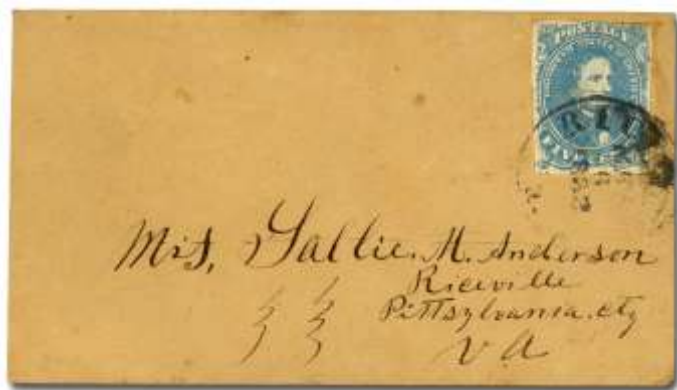 POSTAGE
FIVE
RI
Mrs, Sallie. M. Anderson
Riceville
Pittsylvania. cty
VA